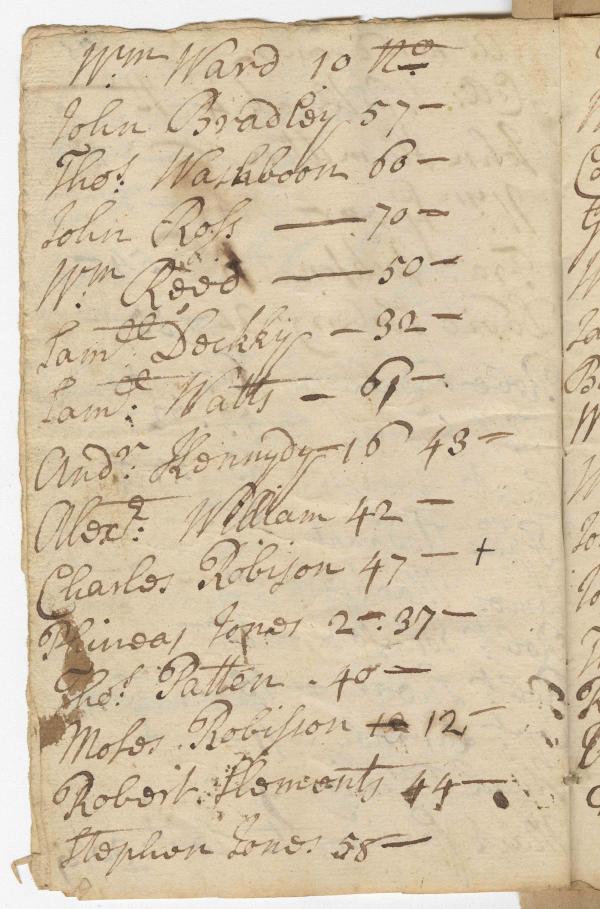 Wm Ward 10 No
John Bradley 57 —
Thos: Washboon 60 —
John Ross — 70 —
Wm Reed — 50 —
Samll Deckky — 32 —
Samll: Watts — 61 —
Andr: Kennydy — 16 43 —
Alexr: William 42 —
Charles Robison 47 — +
Phineas Jones 2 — : 37 —
Thos Patten . 40 —
Moses . Robisson 12 —
Robert Klements 44 —
Stephen Jones 58 —